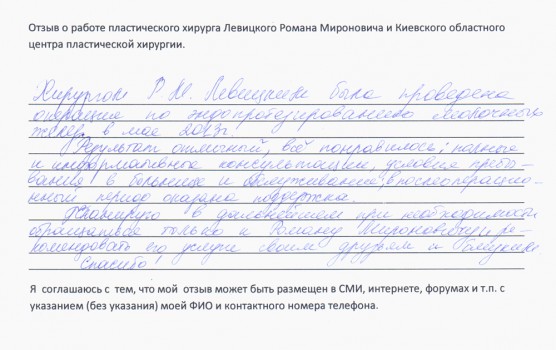 Отзыв о работе пластического хирурга Левицкого Романа Мироновича и Киевского областного
центра пластической хирургии.
Хирургом Р. М. Левицким была проведена
операция по эндопротезированию молочных
желез в мае 2013г.
Результат отличный, всё понравилось: полные
и информативные консультации, условия пребы-
вания в больнице и обслуживание, в послеоперацион-
ный период оказана поддержка.
в дальнейшем при необходимости
обращаться только к Роману Мироновичу и ре-
комендовать его услуги своим друзьям и близким
Спасибо!
Я соглашаюсь с тем, что мой отзыв может быть размещен в СМИ, интернете, форумах и т.п. с
указанием (без указания) моей ФИО и контактного номера телефона.